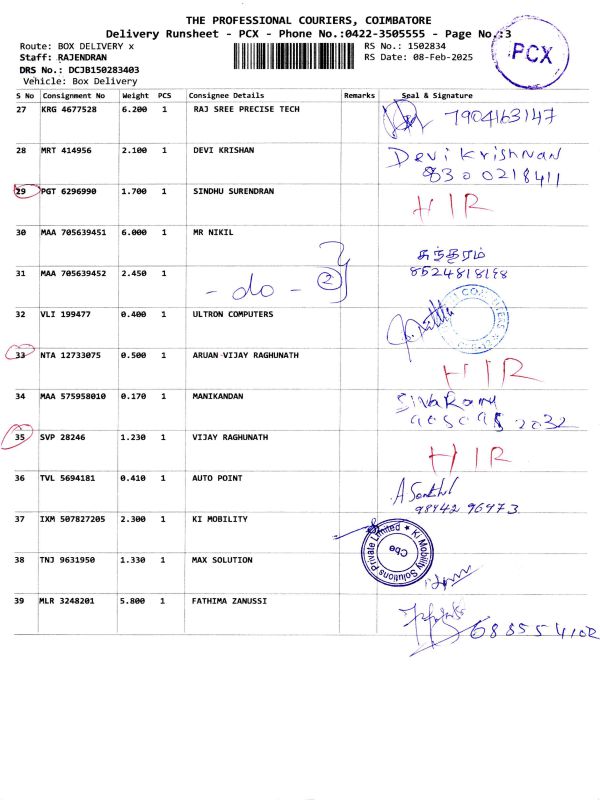 THE PROFESSIONAL COURIERS, COIMBATORE
Delivery Runsheet - PCX - Phone No.:0422-3505555 - Page No.:3
Route: BOX DELIVERY x
RS No.: 1502834
PCX
Staff: RAJENDRAN
RS Date: 08-Feb-2025
DRS No.: DCJB150283403
Vehicle: Box Delivery
S No Consignment No Weight PCS Consignee Details Remarks Seal & Signature
27 KRG 4677528 6.200 1 RAJ SREE PRECISE TECH 7904163147
28 MRT 414956 2.100 1 DEVI KRISHAN Devi Krishnan
8300218411
29 PGT 6296990 1.700 1 SINDHU SURENDRAN HIR
30 MAA 705639451 6.000 1 MR NIKIL சுந்திரம்
31 MAA 705639452 2.450 1 - do - 2 8524818198
32 VLI 199477 0.400 1 ULTRON COMPUTERS
33 NTA 12733075 0.500 1 ARUAN-VIJAY RAGHUNATH HIR
34 MAA 575958010 0.170 1 MANIKANDAN
35 SVP 28246 1.230 1 VIJAY RAGHUNATH HIR
36 TVL 5694181 0.410 1 AUTO POINT
98442 96973
37 IXM 507827205 2.300 1 KI MOBILITY
KI Mobility Solutions Private Limited ★ Cbe
38 TNJ 9631950 1.330 1 MAX SOLUTION
39 MLR 3248201 5.800 1 FATHIMA ZANUSSI